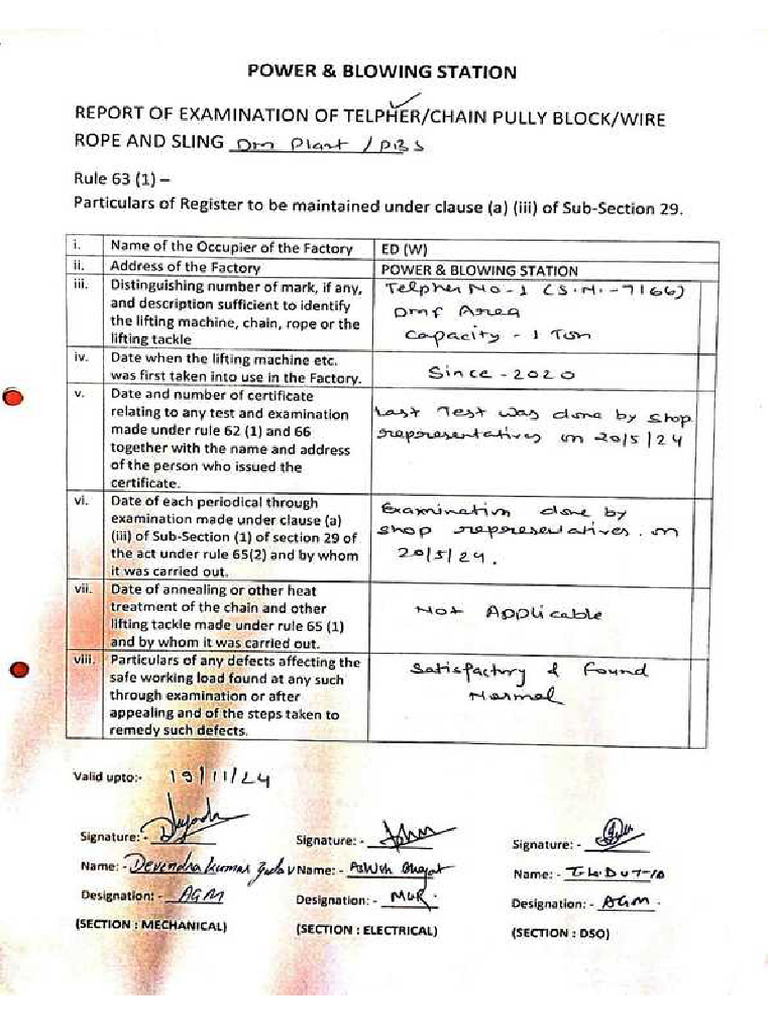 POWER & BLOWING STATION
REPORT OF EXAMINATION OF TELPHER/CHAIN PULLY BLOCK/WIRE
ROPE AND SLING Dm Plant / PBS
Rule 63 (1) –
Particulars of Register to be maintained under clause (a) (iii) of Sub-Section 29.
i. Name of the Occupier of the Factory ED (W)
ii. Address of the Factory POWER & BLOWING STATION
iii. Distinguishing number of mark, if any,
and description sufficient to identify
the lifting machine, chain, rope or the
lifting tackle
Telpher No-1 (S.N.-7166)
Dmf Area
Capacity - 1 Ton
iv. Date when the lifting machine etc.
was first taken into use in the Factory.
Since - 2020
v. Date and number of certificate
relating to any test and examination
made under rule 62 (1) and 66
together with the name and address
of the person who issued the
certificate.
Last Test was done by shop
representatives on 20/5/24
vi. Date of each periodical through
examination made under clause (a)
(iii) of Sub-Section (1) of section 29 of
the act under rule 65(2) and by whom
it was carried out.
Examination done by
shop representatives. on
20/5/24.
vii. Date of annealing or other heat
treatment of the chain and other
lifting tackle made under rule 65 (1)
and by whom it was carried out.
Not Applicable
viii. Particulars of any defects affecting the
safe working load found at any such
through examination or after
appealing and of the steps taken to
remedy such defects.
Satisfactory & Found
Normal
Valid upto:- 19/11/24
Signature: - Signature: - Signature: -
Name: - Devendra Kumar Yadav Name: - Ashish Bhagat Name: -
Designation: - AGM Designation: - MGR. Designation: - AGM.
(SECTION : MECHANICAL) (SECTION : ELECTRICAL) (SECTION : DSO)